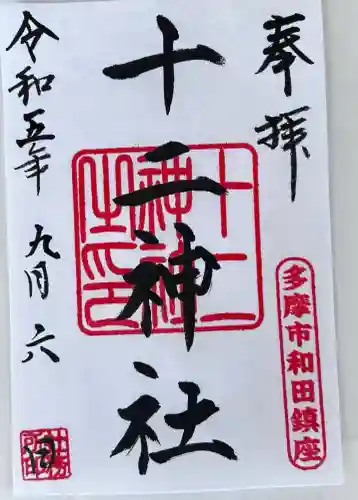 奉拝
多摩市和田鎮座
十二神社
十二神社之印
令和五年 九月 六
日